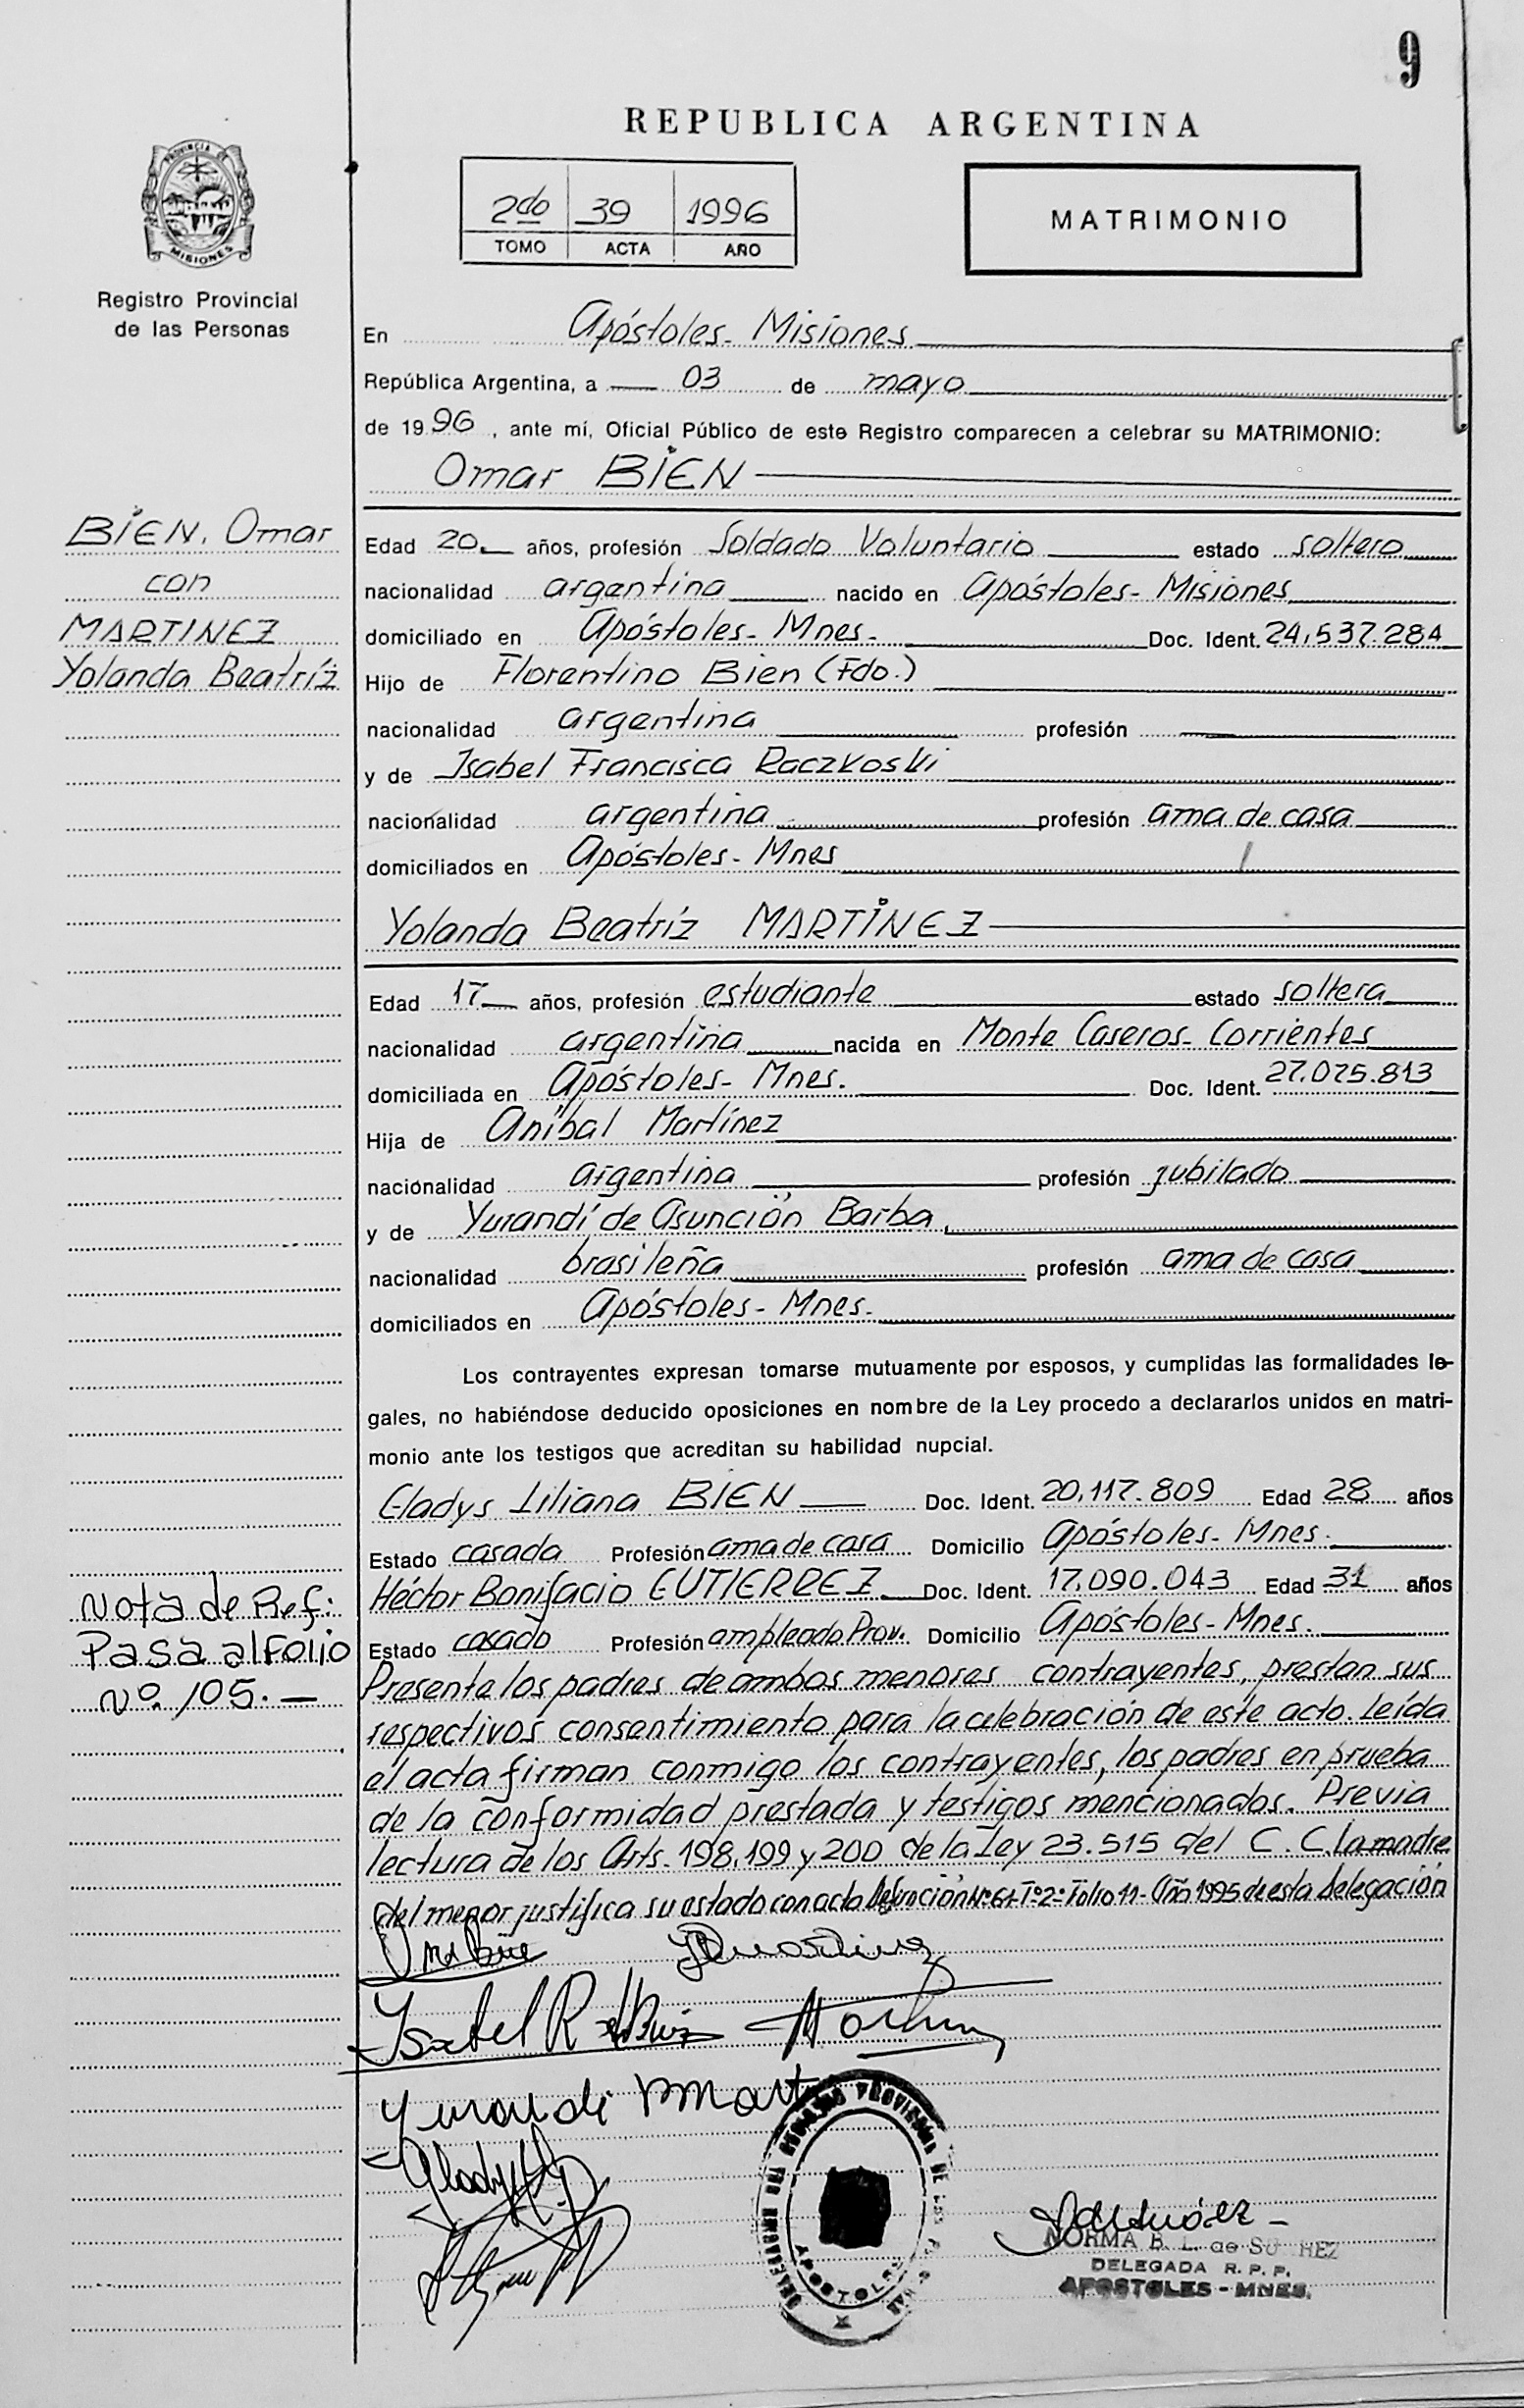 9
REPUBLICA ARGENTINA
PROVINCIA DE
MISIONES
Registro Provincial
de las Personas
2do 39 1996
TOMO ACTA AÑO
MATRIMONIO
En Apóstoles- Misiones
República Argentina, a 03 de mayo
de 1996, ante mí, Oficial Público de este Registro comparecen a celebrar su MATRIMONIO:
Omar BIEN
BIEN, Omar
con
MARTINEZ
Yolanda Beatríz
Edad 20 años, profesión Soldado Voluntario estado soltero
nacionalidad argentina nacido en Apóstoles- Misiones
domiciliado en Apóstoles- Mnes- Doc. Ident. 24,537.284
Hijo de Florentino Bien (Fdo.)
nacionalidad argentina profesión
y de Isabel Francisca Raczkoski
nacionalidad argentina profesión ama de casa
domiciliados en Apóstoles- Mnes
Yolanda Beatríz MARTINEZ
Edad 17 años, profesión estudiante estado soltera
nacionalidad argentina nacida en Monte Caseros- Corrientes
domiciliada en Apóstoles- Mnes. Doc. Ident. 27.075.813
Hija de Aníbal Martínez
nacionalidad argentina profesión jubilado
y de Yurandí de Asunción Barba
nacionalidad brasileña profesión ama de casa
domiciliados en Apóstoles- Mnes.
Los contrayentes expresan tomarse mutuamente por esposos, y cumplidas las formalidades le-
gales, no habiéndose deducido oposiciones en nombre de la Ley procedo a declararlos unidos en matri-
monio ante los testigos que acreditan su habilidad nupcial.
Gladys Liliana BIEN Doc. Ident. 20,117.809 Edad 28 años
Estado casada Profesión ama de casa Domicilio Apóstoles- Mnes.
Héctor Bonifacio GUTIERREZ Doc. Ident. 17.090.043 Edad 31 años
Estado casado Profesión empleado Prov. Domicilio Apóstoles- Mnes.
Nota de Ref:
Pasa al Folio
Nº 105.-
Presente los padres de ambos menores contrayentes, prestan sus
respectivos consentimiento para la celebración de este acto. Leída
el acta firman conmigo los contrayentes, los padres en prueba
de la conformidad prestada y testigos mencionados. Previa
lectura de los Arts. 198,199 y 200 de la Ley 23.515 del C. C. La madre
del menor justifica su estado con acta Defunción Nº 61- Tº 2º Folio 11- Año 1995 de esta Delegación
Isabel R
Yurandi
Gladys
APOSTOLES
NORMA B. L. de
DELEGADA R. P. P.
APOSTOLES - MNES.